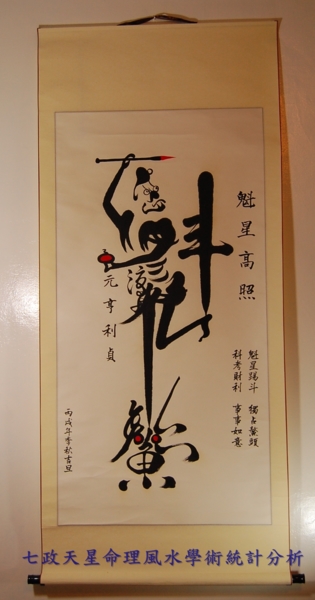 魁星高照
魁星踢斗 獨占鰲頭
科考財利 事事如意
元亨利貞
丙戌年季秋吉旦
七政天星命理風水學術統計分析